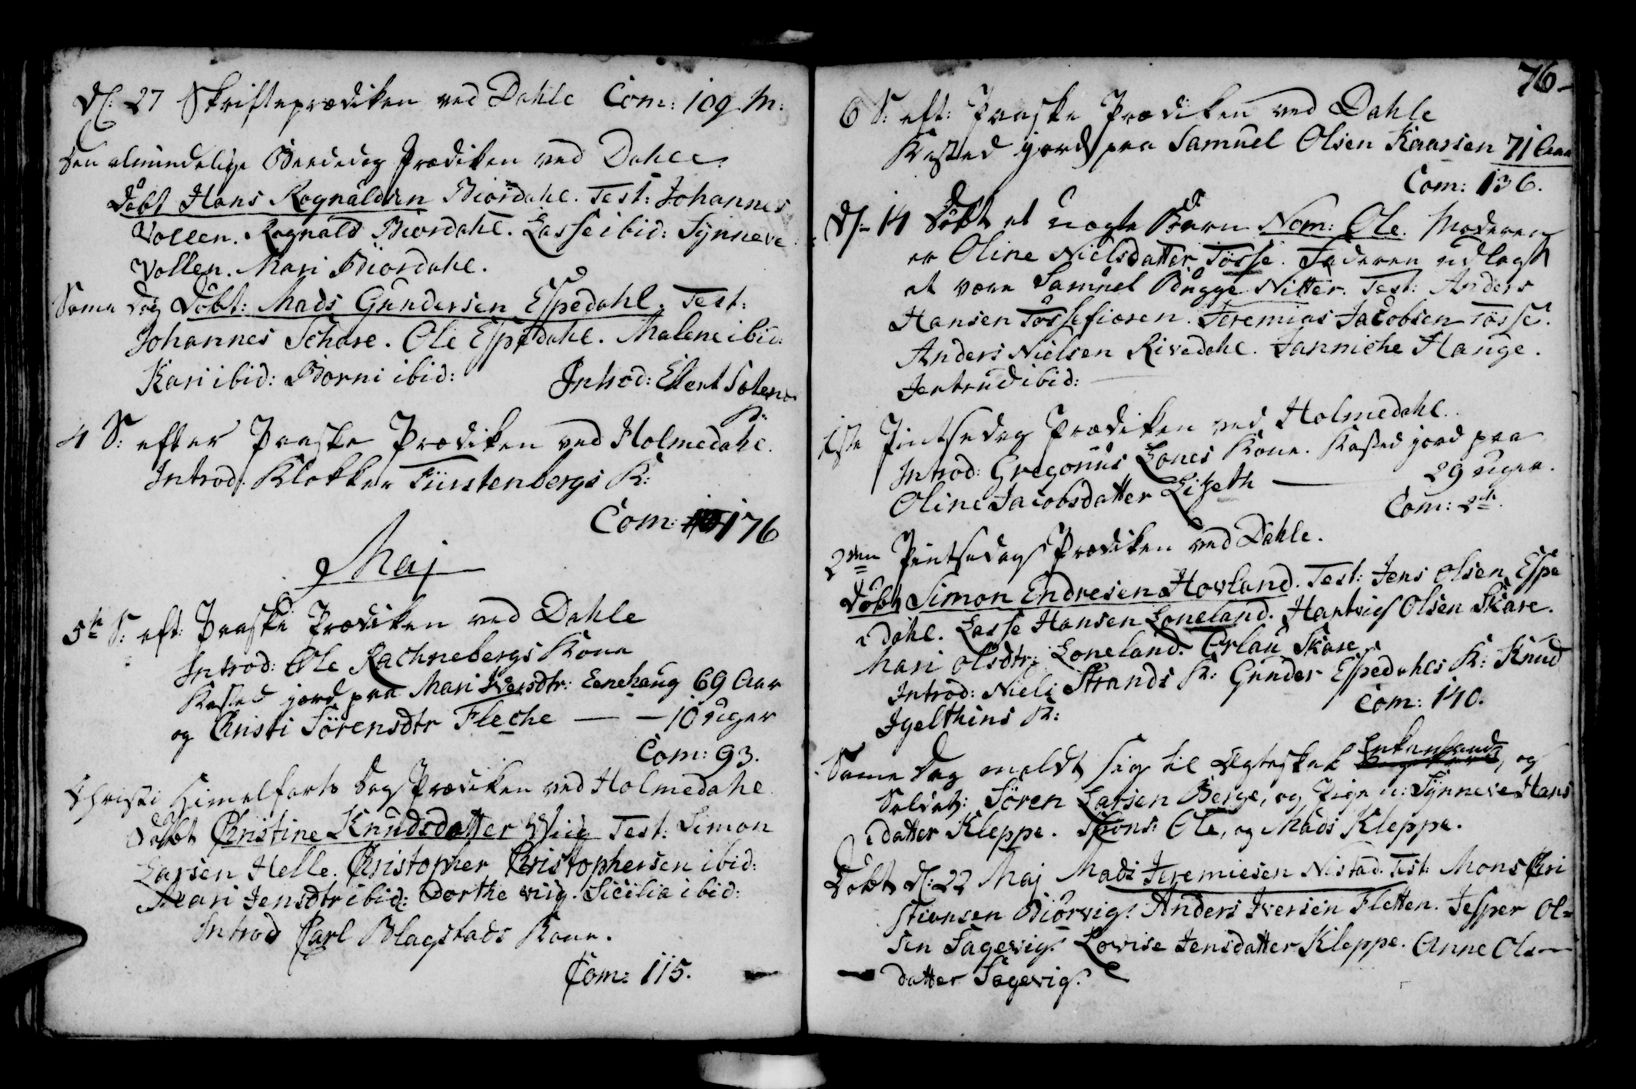 Df: 27 Skrifteprædiken ved Dahle Com: 109 M:
Den almindelige Beededag Prædiken ved Dahle.
Døbt Hans Rognaldsen Biordahl. Test: Johannes
Vollen. Rognald Biordahl. Lasse ibid: Synneve
Vollen. Mari Biordahl.
Samme Dag Døbt: Mads Gundersen Espedahl. Test:
Johannes Schare. Ole Espedahl. Malene ibid:
Kari ibid: Borni ibid: Introd: Elert
K:
4 S: efter Paaske Prædiken ved Holmedahl.
Introd: Klokker Fürstenbergs K:
Com: 176
Maj
5te S: eft: Paaske Prædiken ved Dahle
Introd: Ole Rachnebergs Kone
Kasted jord paa Mari Iversdtr: Eenehaug 69 Aar
og Christi Sörensdtr Fleche — — 10 uger
Com: 93.
Christi Himmelfarts Dag Prædiken ved Holmedahl
Døbt Christine Knudsdatter Viig Test: Simon
Larsen Helle. Christopher Christophersen ibid:
Mari Jensdtr ibid: Dorthe viig. Sicilia ibid:
Introd Carl Blagstads Kone.
Com: 115.
76
6 S: eft: Paaske Prædiken ved Dahle
Kasted jord paa Samuel Olsen Kaassen 71 Aar
Com: 136.
Df: 14 Døbt et uægte Barn Nom: Ole. Moderen
er Oline Nielsdatter Tösse. Faderen udlagt
at være Samuel Bugge Nitter. Test: Anders
Hansen Tössefioren. Jeremias Jacobsen Tösse.
Anders Nielsen Rivedahl. Janniche Hauge.
Jertrud ibid:
1ste Pintsedag Prædiken ved Holmedahl.
Introd: Gregorius Lones Kone. Kasted jord paa
Oline Jacobsdatter — 29 uger.
Com:
2den Pintsedag Prædiken ved Dahle.
Døbt Simon Endresen Hovland. Test: Jens Olsen Espe
dahl. Lasse Hansen Loneland. Hartvig Olsen Skare.
Mari Olsdtr: Loneland. Skare.
Introd: Niels Strands K: Gunder Espedahls K: Knud
K: Com: 140.
Samme Dag meldt sig til Ægteskab Enkemand, og
Soldat: Sören Larsen Berge, og Pige n: Synneve Hans
datter Kleppe. Spons: Ole, og Mads Kleppe.
Døbt d: 22 Maj Mads Jeremiesen Nistad. Test: Mons Chri
stiensen Biörvig. Anders Iversen Fletten. Jesper Ol=
sen Sagevig. Lovise Jensdatter Kleppe. Anne Ols—
— datter Sagevig.